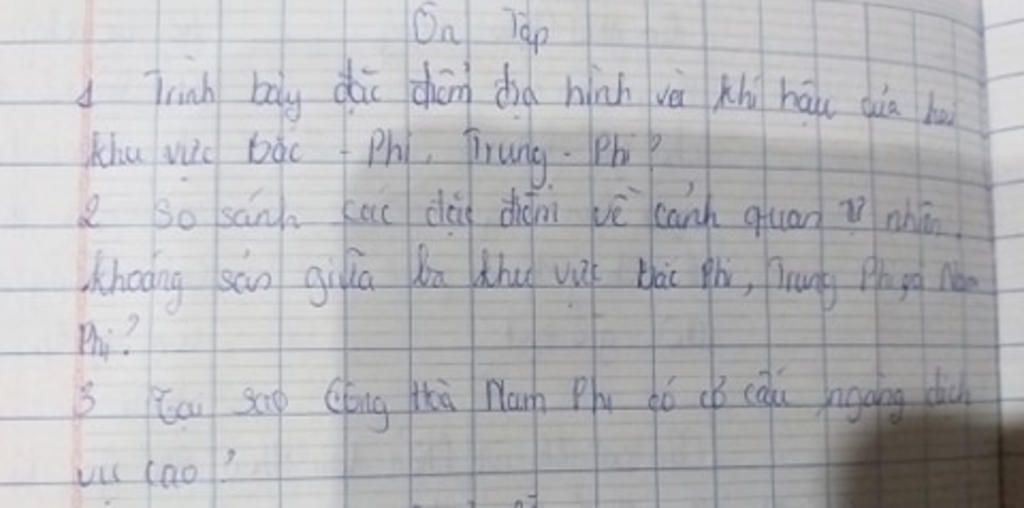 Ôn Tập
1 Trình bày đặc điểm địa hình và khí hậu của hai
khu vực bắc - Phi, Trung - Phi?
2 So sánh các đặc điểm về cảnh quan tự nhiên,
khoáng sản giữa ba khu vực Bắc Phi, Trung Phi và Nam
Phi?
3 Tại sao Cộng Hoà Nam Phi có cơ cấu ngàng dịch
vụ cao?